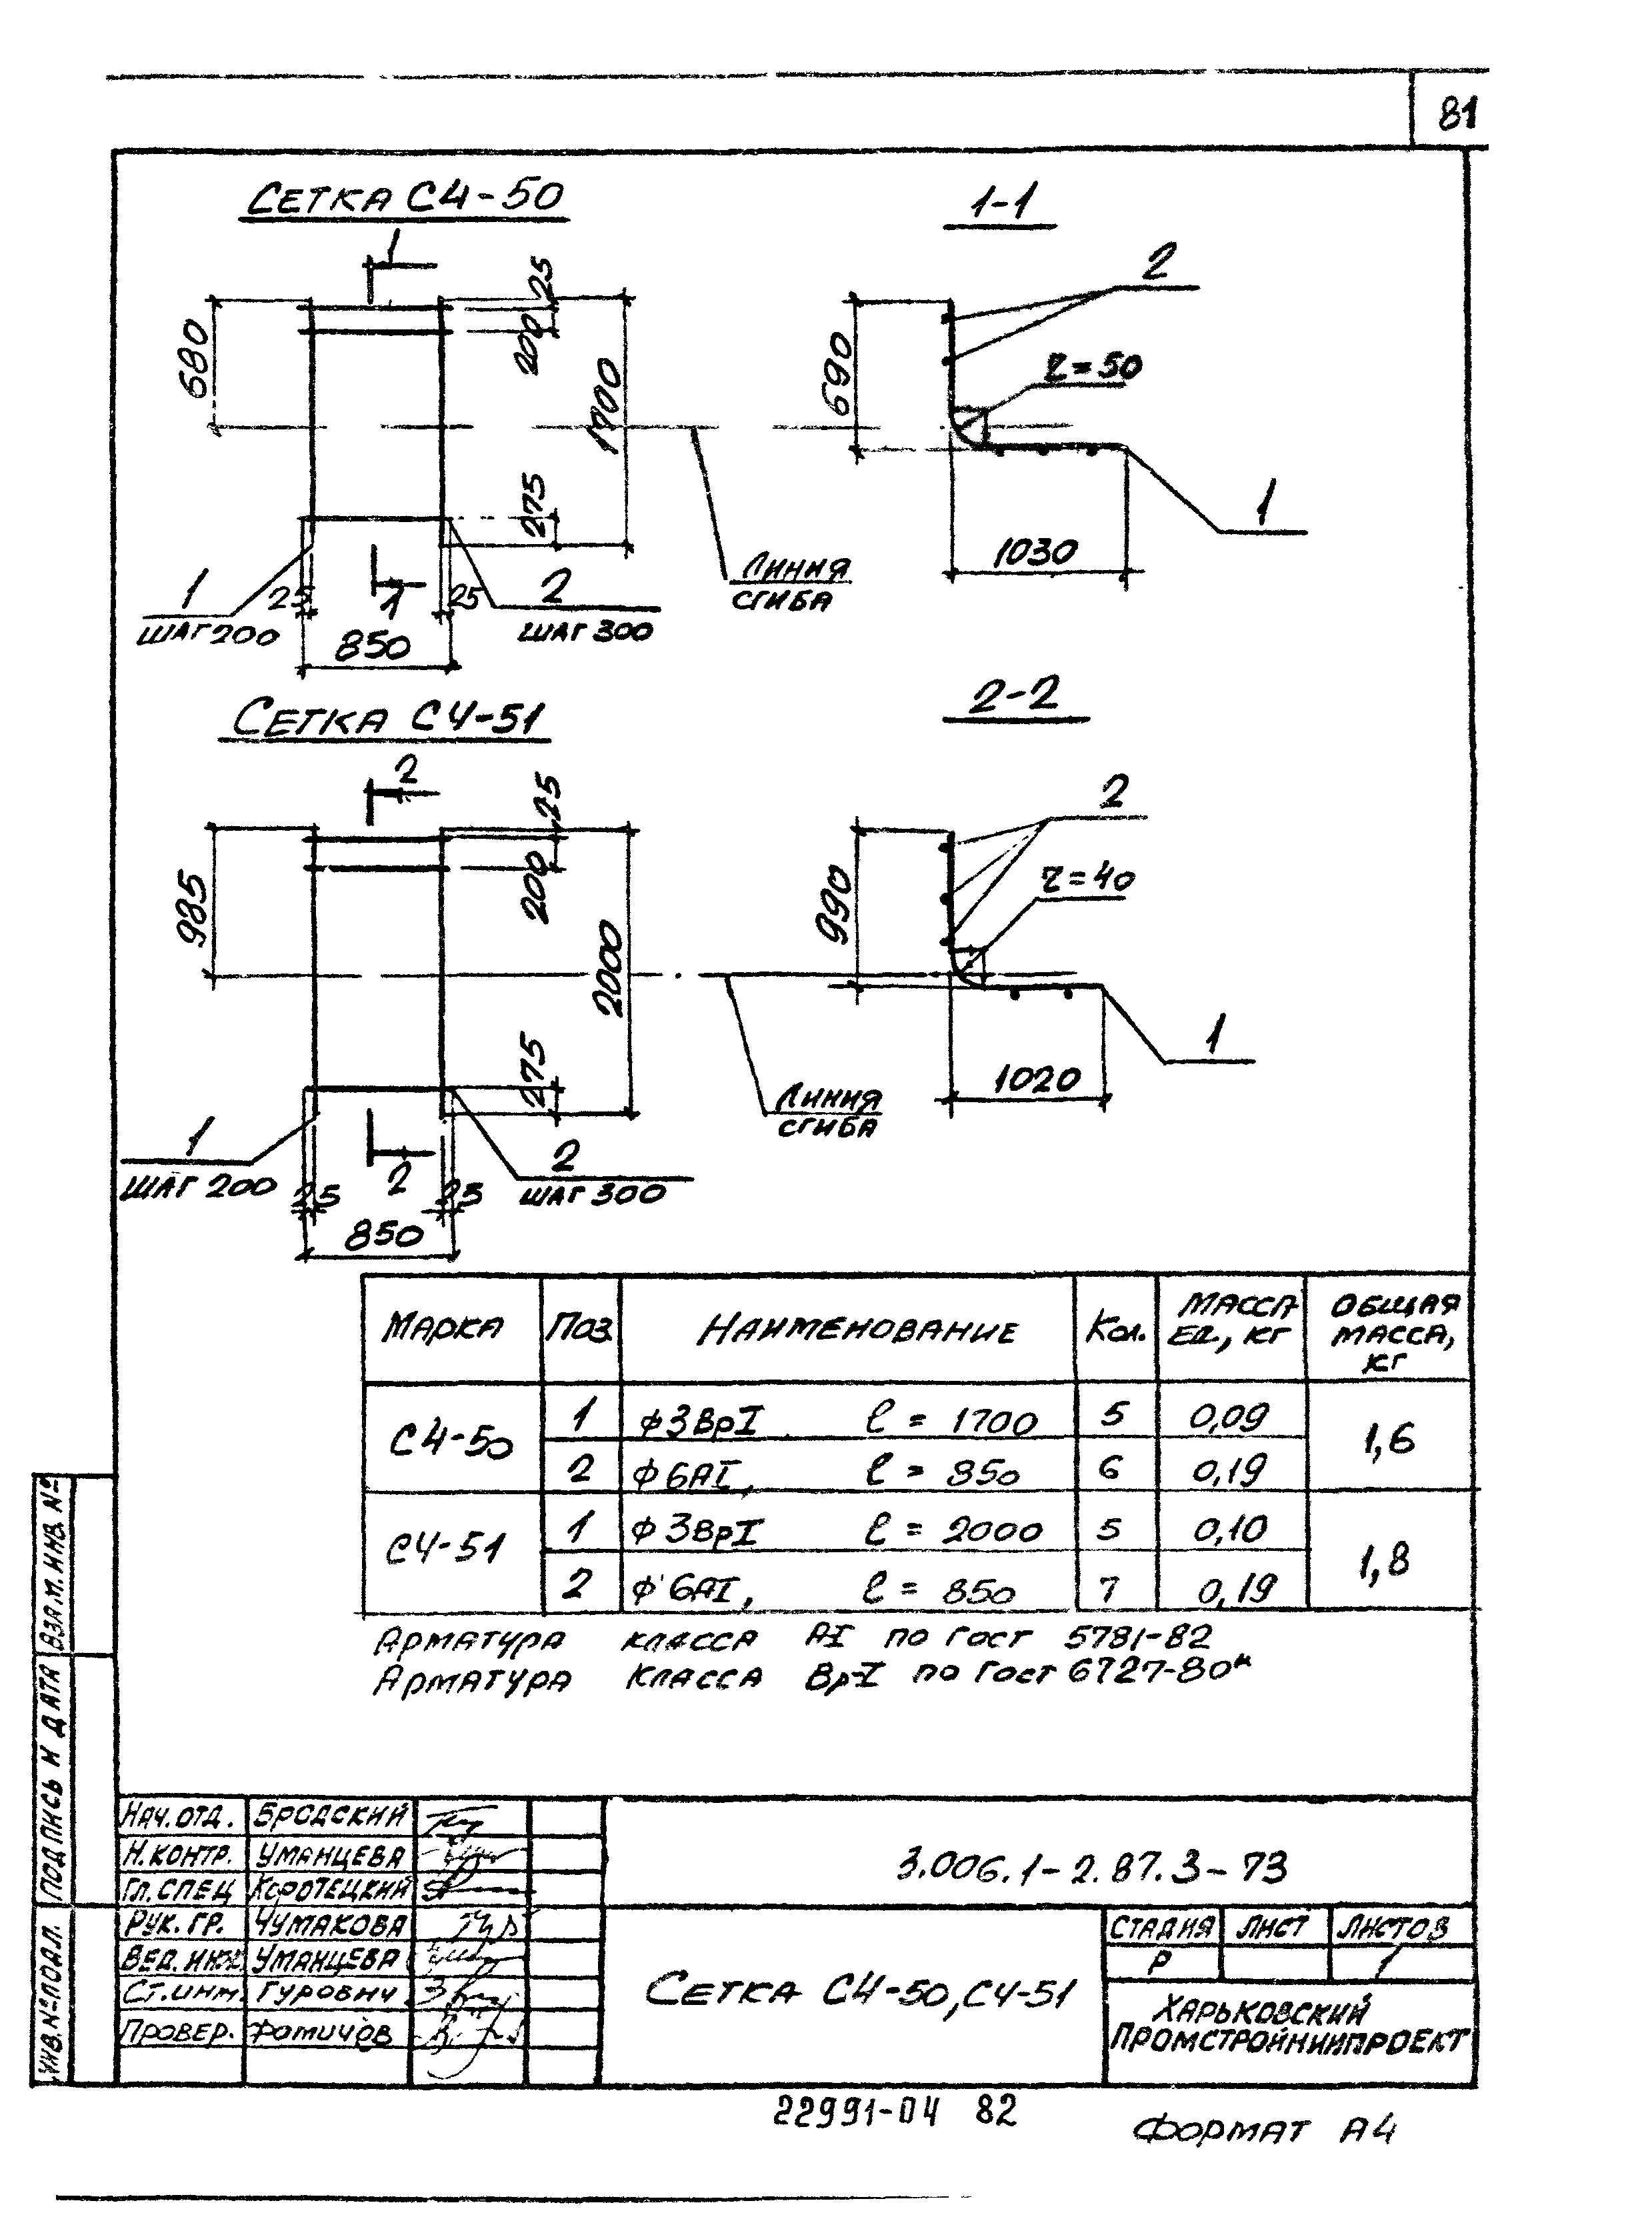 81
Сетка С4-50
1-1
1
25
200
680
1700
275
Линия
сгиба
1
шаг 200
25
1
25
2
шаг 300
850
2
690
r=50
1
1030
Сетка С4-51
2-2
2
25
200
985
2000
275
Линия
сгиба
1
шаг 200
25
2
25
2
шаг 300
850
2
990
r=40
1
1020
Марка Поз. Наименование Кол. Масса ед., кг Общая масса, кг
С4-50 1 ф3ВрI ℓ = 1700 5 0,09 1,6
2 ф6АI, ℓ = 850 6 0,19
С4-51 1 ф3ВрI ℓ = 2000 5 0,10 1,8
2 ф6АI, ℓ = 850 7 0,19
Арматура класса АI по ГОСТ 5781-82
Арматура класса Вр-I по ГОСТ 6727-80*
Взам. инв. №
Подпись и дата
Инв. № подл.
Нач. отд. Бродский
Н. контр. Уманцева
Гл. спец Коротецкий
Рук. гр. Чумакова
Вед. инж. Уманцева
Ст. инж. Гурович
Провер. Фомичов
3.006.1-2.87.3-73
Сетка С4-50, С4-51
Стадия Лист Листов
Р 1
Харьковский
Промстройниипроект
22991-04 82
Формат А4